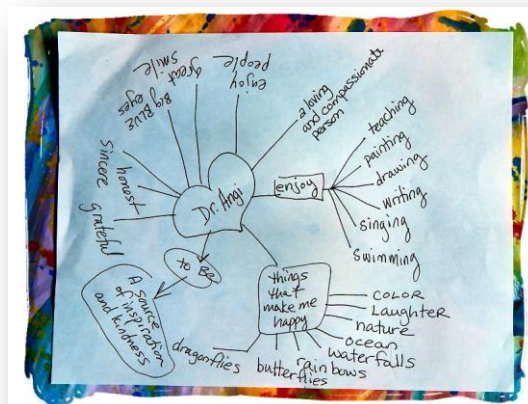 enjoy
people
great
smile
Big BLUE
eyes
Sincere
honest
grateful
Dr. Angi
a loving
and compassionate
person
enjoy
teaching
painting
drawing
writing
singing
swimming
to BE
A source
of inspiration
and kindness
things
that
make me
happy
COLOR
LaughtER
nature
ocean
waterfalls
rainbows
butterflies
dragonflies